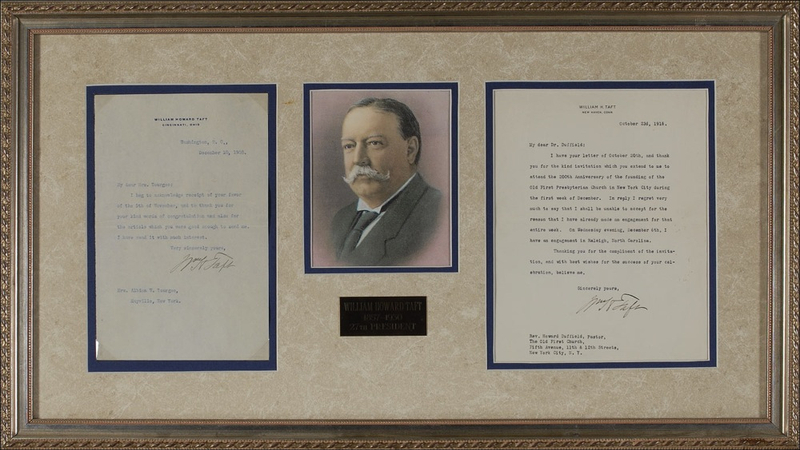 WILLIAM HOWARD TAFT
CINCINNATI, OHIO
Washington, D. C.,
December 10, 1908.
My dear Mrs. Tourgee:
I beg to acknowledge receipt of your favor
of the 5th of December, and to thank you for
your kind words of congratulation and also for
the article which you were good enough to send me.
I have read it with much interest.
Very sincerely yours,
Wm H Taft
Mrs. Albion W. Tourgee,
Mayville, New York.
WILLIAM HOWARD TAFT
1857-1930
27th PRESIDENT
WILLIAM H. TAFT
NEW HAVEN, CONN
October 23d, 1916.
My dear Dr. Duffield:
I have your letter of October 20th, and thank
you for the kind invitation which you extend to me to
attend the 200th Anniversary of the founding of the
Old First Presbyterian Church in New York City during
the first week of December. In reply I regret very
much to say that I shall be unable to accept for the
reason that I have already made an engagement for that
entire week. On Wednesday evening, December 6th, I
have an engagement in Raleigh, North Carolina.
Thanking you for the compliment of the invita-
tion, and with best wishes for the success of your cel-
ebration, believe me,
Sincerely yours,
Wm H Taft
Rev. Howard Duffield, Pastor,
The Old First Church,
Fifth Avenue, 11th & 12th Streets,
New York City, N. Y.